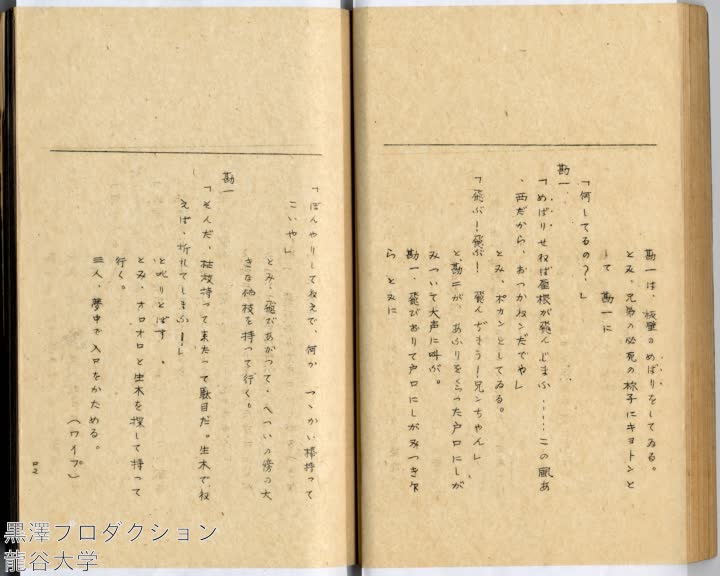 勘一は、板壁のめばりをしてゐる。
とみ、兄弟の必死の様子にキョトンと
して 勘一に
「何してるの？」
勘一
「めばりせねば屋根が飛んじまふ……この風あ
、西だから、おっかねンだでや」
とみ、ポカンとしてゐる。
「飛ぶ！飛ぶ！ 飛んぢまう！兄ンちゃん」
と勘二が、あふりをくった戸口にしが
みついて大声に叫ぶ。
勘一、飛びおりて戸口にしがみつき乍
ら とみに
「ぼんやりしてねえで、何か つっかい棒持って
こいや」
とみ、飛びあがって、へっついの傍の大
きな枯枝を持って行く。
勘一
「そんだ、枯枝持って来たって駄目だ。生木でね
えば、折れてしまふ！」
と叱りとばす。
とみ、オロオロと生木を探して持って
行く。
三人、夢中で入口をかためる。
（ワイプ）
ロ2
黒澤プロダクション
龍谷大学